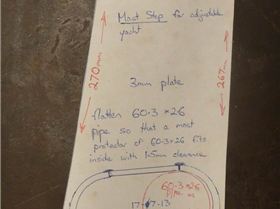 Mast Step for adjustable
yacht
270mm
267mm
3mm plate
flatten 60.3 x 2.6
pipe so that a mast
protector of 60.3 x 2.6 fits
inside with 1.5mm clearance
60.3 x 2.6
17.13